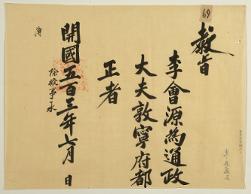 69
敎旨
李會源爲通政
大夫敦寧府都
正者
開國五百三年七月 日